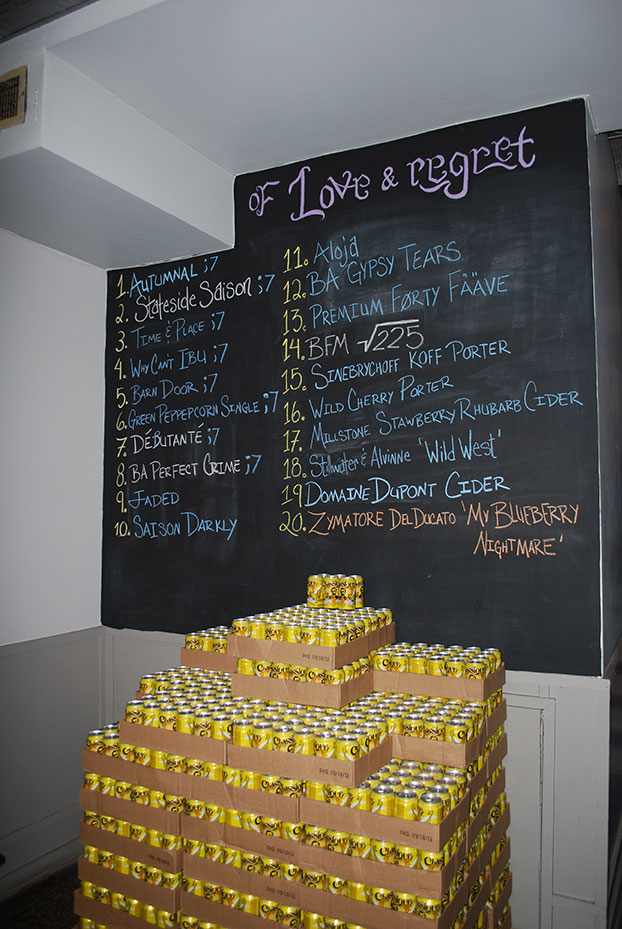 of Love & regret
1. Autumnal ;7
2. Stateside Saison ;7
3. Time & Place ;7
4. Why Can't IBU ;7
5. Barn Door ;7
6. Green Peppepcorn Single ;7
7. Débutanté ;7
8. BA Perfect Crime ;7
9. Jaded
10. Saison Darkly
11. Aloja
12. BA Gypsy Tears
13. Premium Førty Fååve
14. BFM √225
15. Sinebrychoff Koff Porter
16. Wild Cherry Porter
17. Millstone Stawberry Rhubarb Cider
18. Stillwater & Alvinne 'Wild West'
19 Domaine Dupont Cider
20. Zymatore Del Ducato 'My Blueberry
Nightmare'
Classique